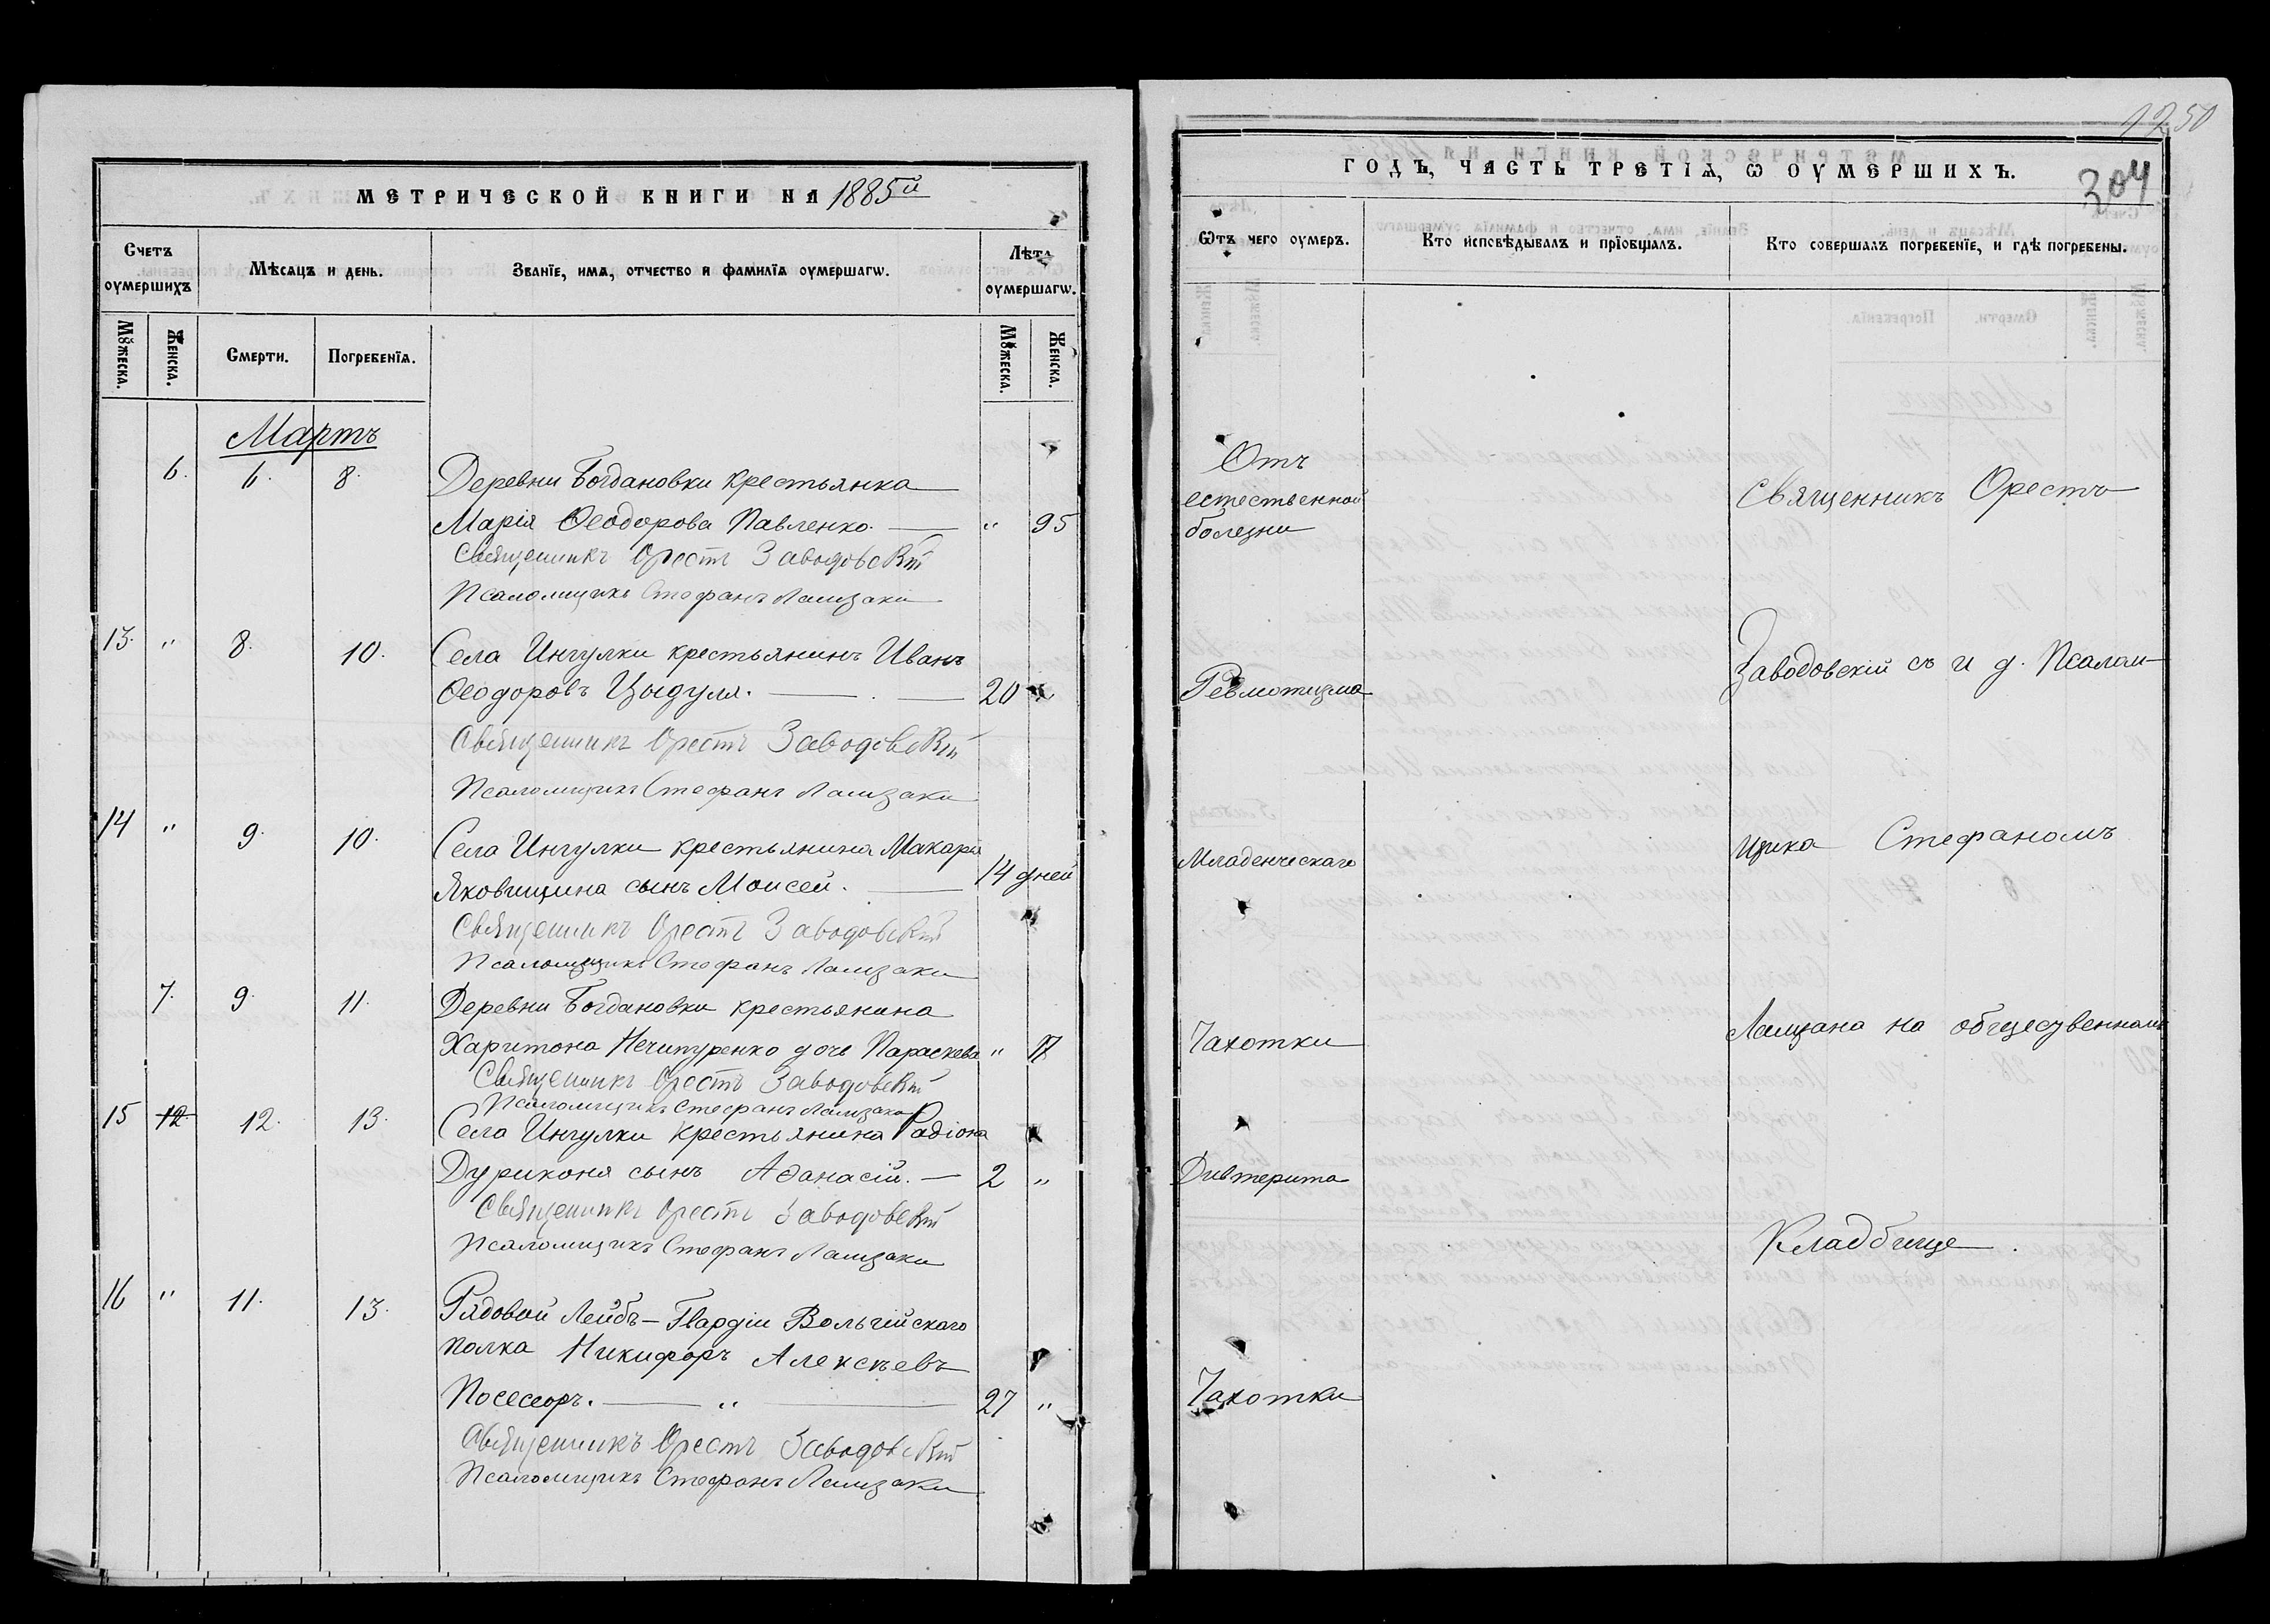 МЕТРИЧЕСКОЙ КНИГИ НА 1885й
Счетъ оумершихъ
Мѣсяцъ и день.
Званїе, имя, отчество и фамилїя оумершагѡ.
Лѣта оумершагѡ.
Мꙋжеска.
Женска.
Смерти.
Погребенїя.
Мꙋжеска.
Женска.
Мартъ
6. 6. 8. Деревни Богдановки крестьянка
Марія Ѳеодорова Павленко. — " 95
Священникъ Орестъ Заводовскій
Псаломщикъ Стефанъ
13. " 8. 10. Села Ингулки крестьянинъ Иванъ
Ѳеодоровъ Цыдуля. — 20
Священникъ Орестъ Заводовскій
Псаломщикъ Стефанъ
14 " 9. 10. Села Ингулки крестьянина Макарія
Яковищина сынъ Моисей. — 14 дней
Священникъ Орестъ Заводовскій
Псаломщикъ Стефанъ
7. 9. 11. Деревни Богдановки крестьянина
Харитона Нечипуренко дочь Параскева "
Священникъ Орестъ Заводовскій
Псаломщикъ Стефанъ
15 12. 12. 13. Села Ингулки крестьянина Радіона
сынъ Аѳанасій. — 2 "
Священникъ Орестъ Заводовскій
Псаломщикъ Стефанъ
16 " 11. 13. Рядовой Лейбъ-Гвардіи
полка Никифоръ Алексѣевъ
Посессоръ. — " — 27 "
Священникъ Орестъ Заводовскій
Псаломщикъ Стефанъ
1250
ГОДЪ, ЧАСТЬ ТРЕТІЯ, Ѡ ОУМЕРШИХЪ.
304
Ѿтъ чего оумеръ.
Кто исповѣдывалъ и прїобщалъ.
Кто совершалъ погребенїе, и гдѣ погребены.
Отъ
естественной
болезни
Священникъ Орестъ
Заводовскій съ и д. Псалом-
Ревмотизма
Младенческаго
щика Стефаномъ
на общественномъ
Чахотки
Дивтерита
Кладбище.
Чахотки